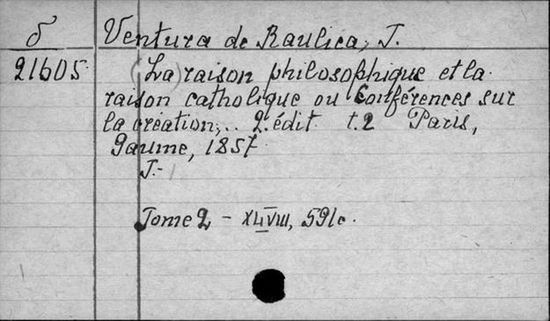 б Ventura de Raulica, J.
21605 (La) raison philosophique et la
raison catholique ou Conférences sur
la création,.. 2. édit t.2 Paris,
Gaume, 1857
T.-1
Tome 2 - XLVIII, 591c.